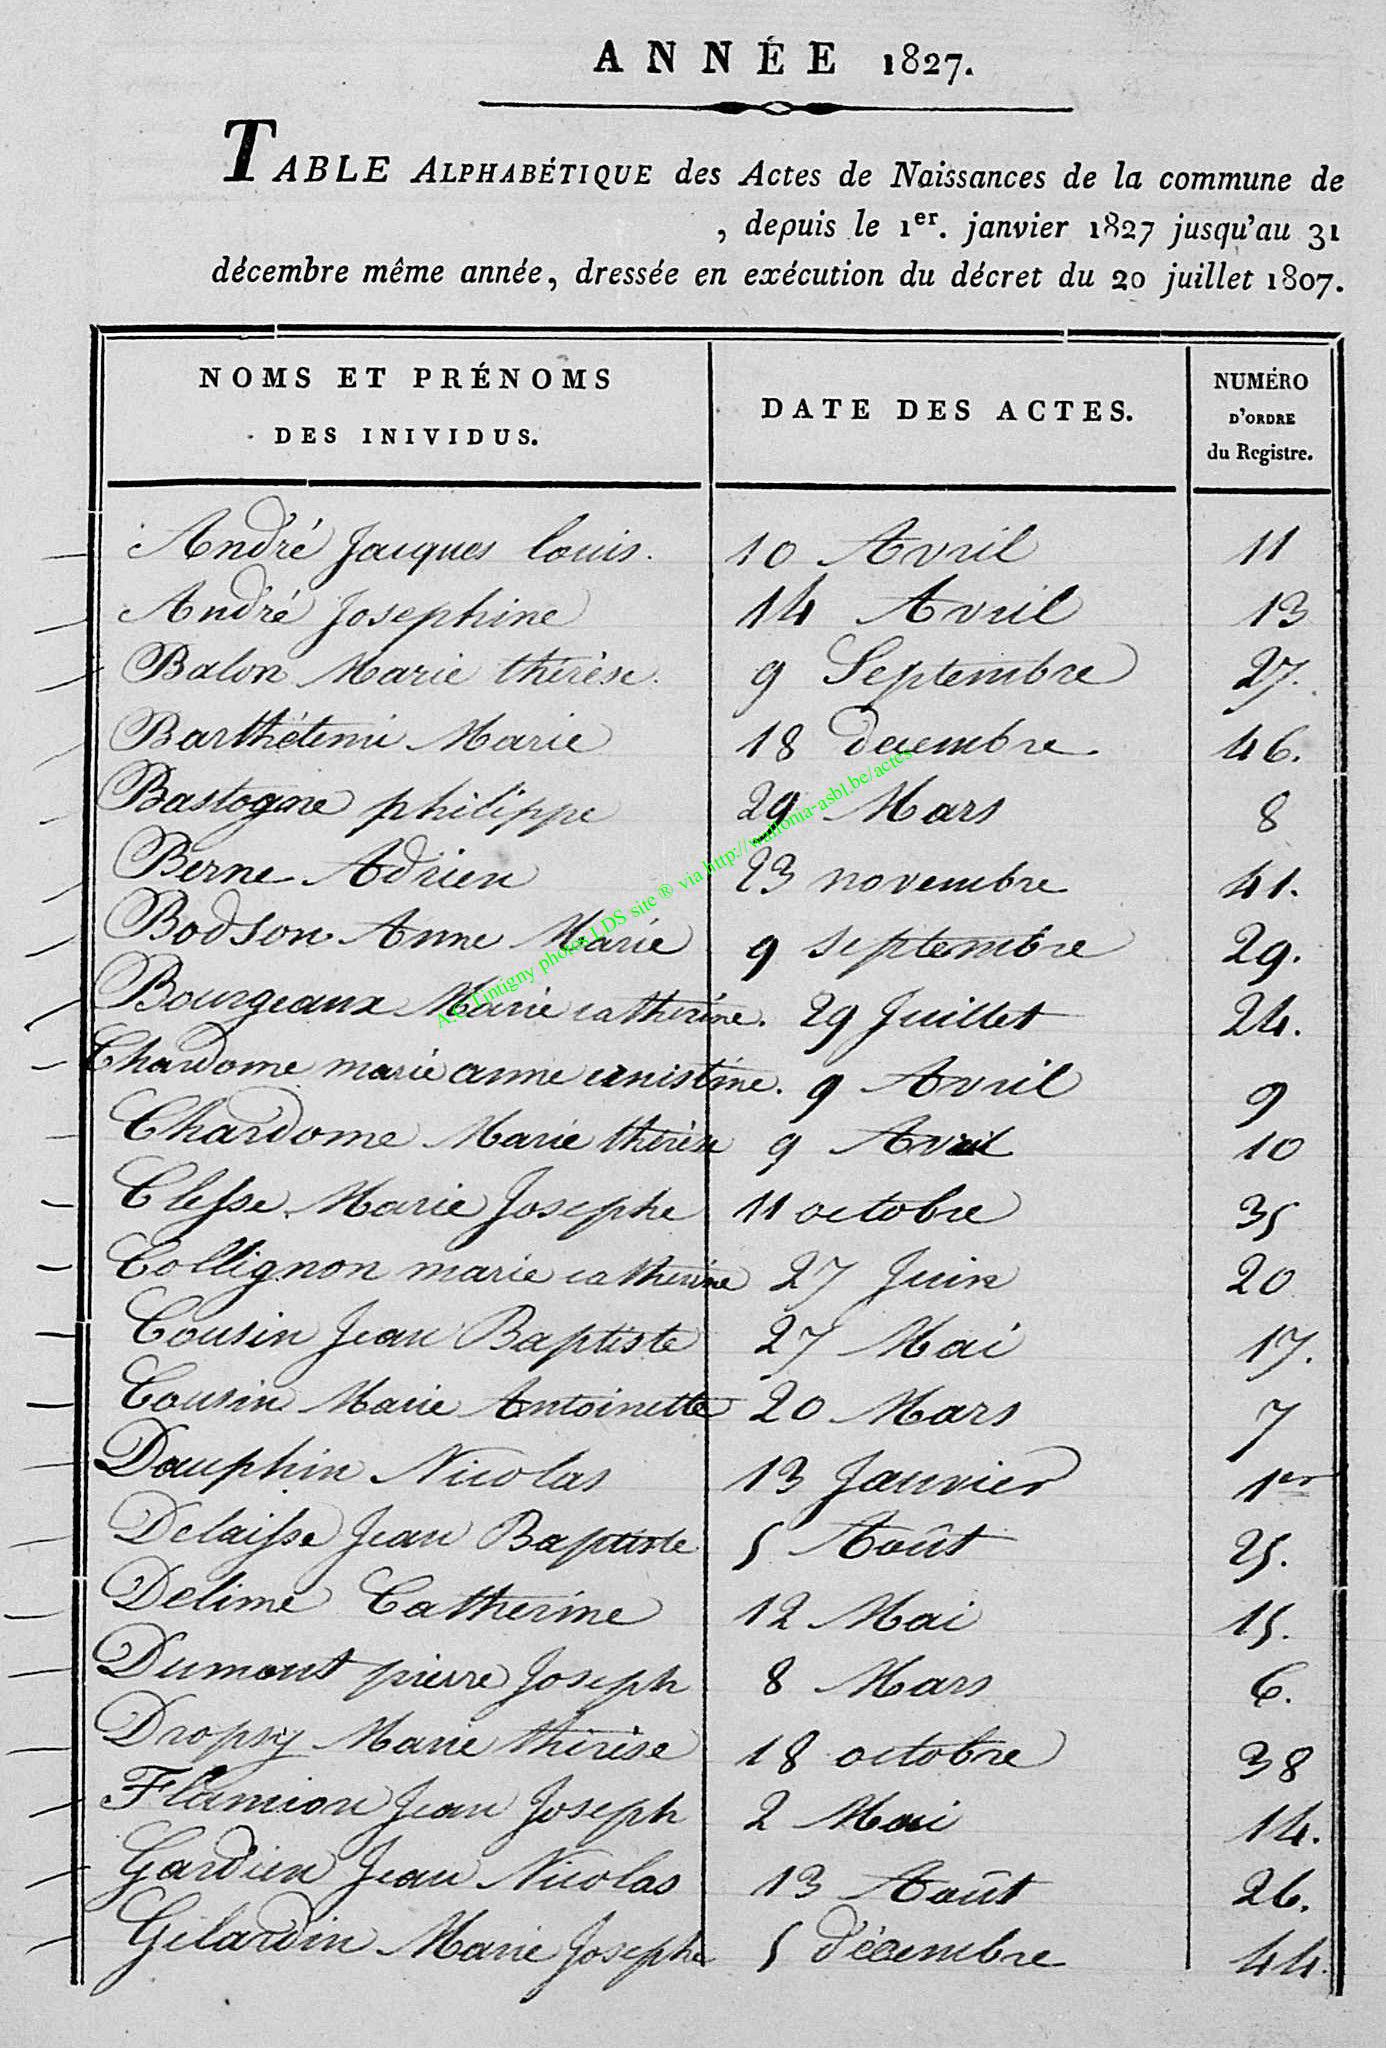 ANNÉE 1827.
TABLE ALPHABÉTIQUE des Actes de Naissances de la commune de
, depuis le 1er. janvier 1827 jusqu'au 31
décembre même année, dressée en exécution du décret du 20 juillet 1807.
NOMS ET PRÉNOMS
DES INIVIDUS.
DATE DES ACTES.
NUMÉRO
D'ORDRE
du Registre.
André Jacques louis. 10 Avril 11
André Josephine 14 Avril 13
Balon Marie thérèse. 9 Septembre 27.
Barthélemi Marie 18 decembre. 46.
Bastogne philippe 29 Mars 8
Berne Adrien 23 novembre 41.
Bodson Anne Marie 9 septembre 29.
Bourgeaux Marie catherine. 29 Juillet 24.
Chardome marie anne ernistine. 9 Avril 9
Chardome Marie thérèse 9 Avril 10
Clesse Marie Josephe 11 octobre 35
Collignon marie catherine 27 Juin 20
Cousin Jean Baptiste 27 Mai 17.
Cousin Marie Antoinette 20 Mars 7
Dauphin Nicolas 13 Janvier 1er
Delaisse Jean Baptiste 5 Août 25.
Delime Catherine 12 Mai 15.
Dumont pierre Joseph 8 Mars 6.
Dropsy Marie thérèse 18 octobre 38
Flamion Jean Joseph 2 Mai 14.
Gardien Jean Nicolas 13 Août 26.
Gilardin Marie Josephe 5 décembre 44.
A.C. Tintigny photos LDS site ® via http://wallonia-asbl.be/actes